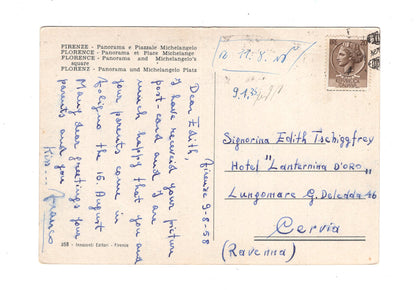 FIRENZE - Panorama e Piazzale Michelangelo
FLORENCE - Panorama et Place Michelange
FLORENCE - Panorama and Michelangelo's
square
FLORENZ - Panorama und Michelangelo Platz
Firenze 9-8-58
Dear Edith,
I have received your picture
post-card and I are
much happy that you and
your parents come in
Foligno the 16. August
Many dear greetings your
parents and you
Kiss... Franco
258 - Innocenti Editori - Firenze
9.1.35
Signorina Edith Tschiggfrey
Hotel "Lanternina D'ORO"
Lungomare G. Deledda 46
Cervia
(Ravenna)